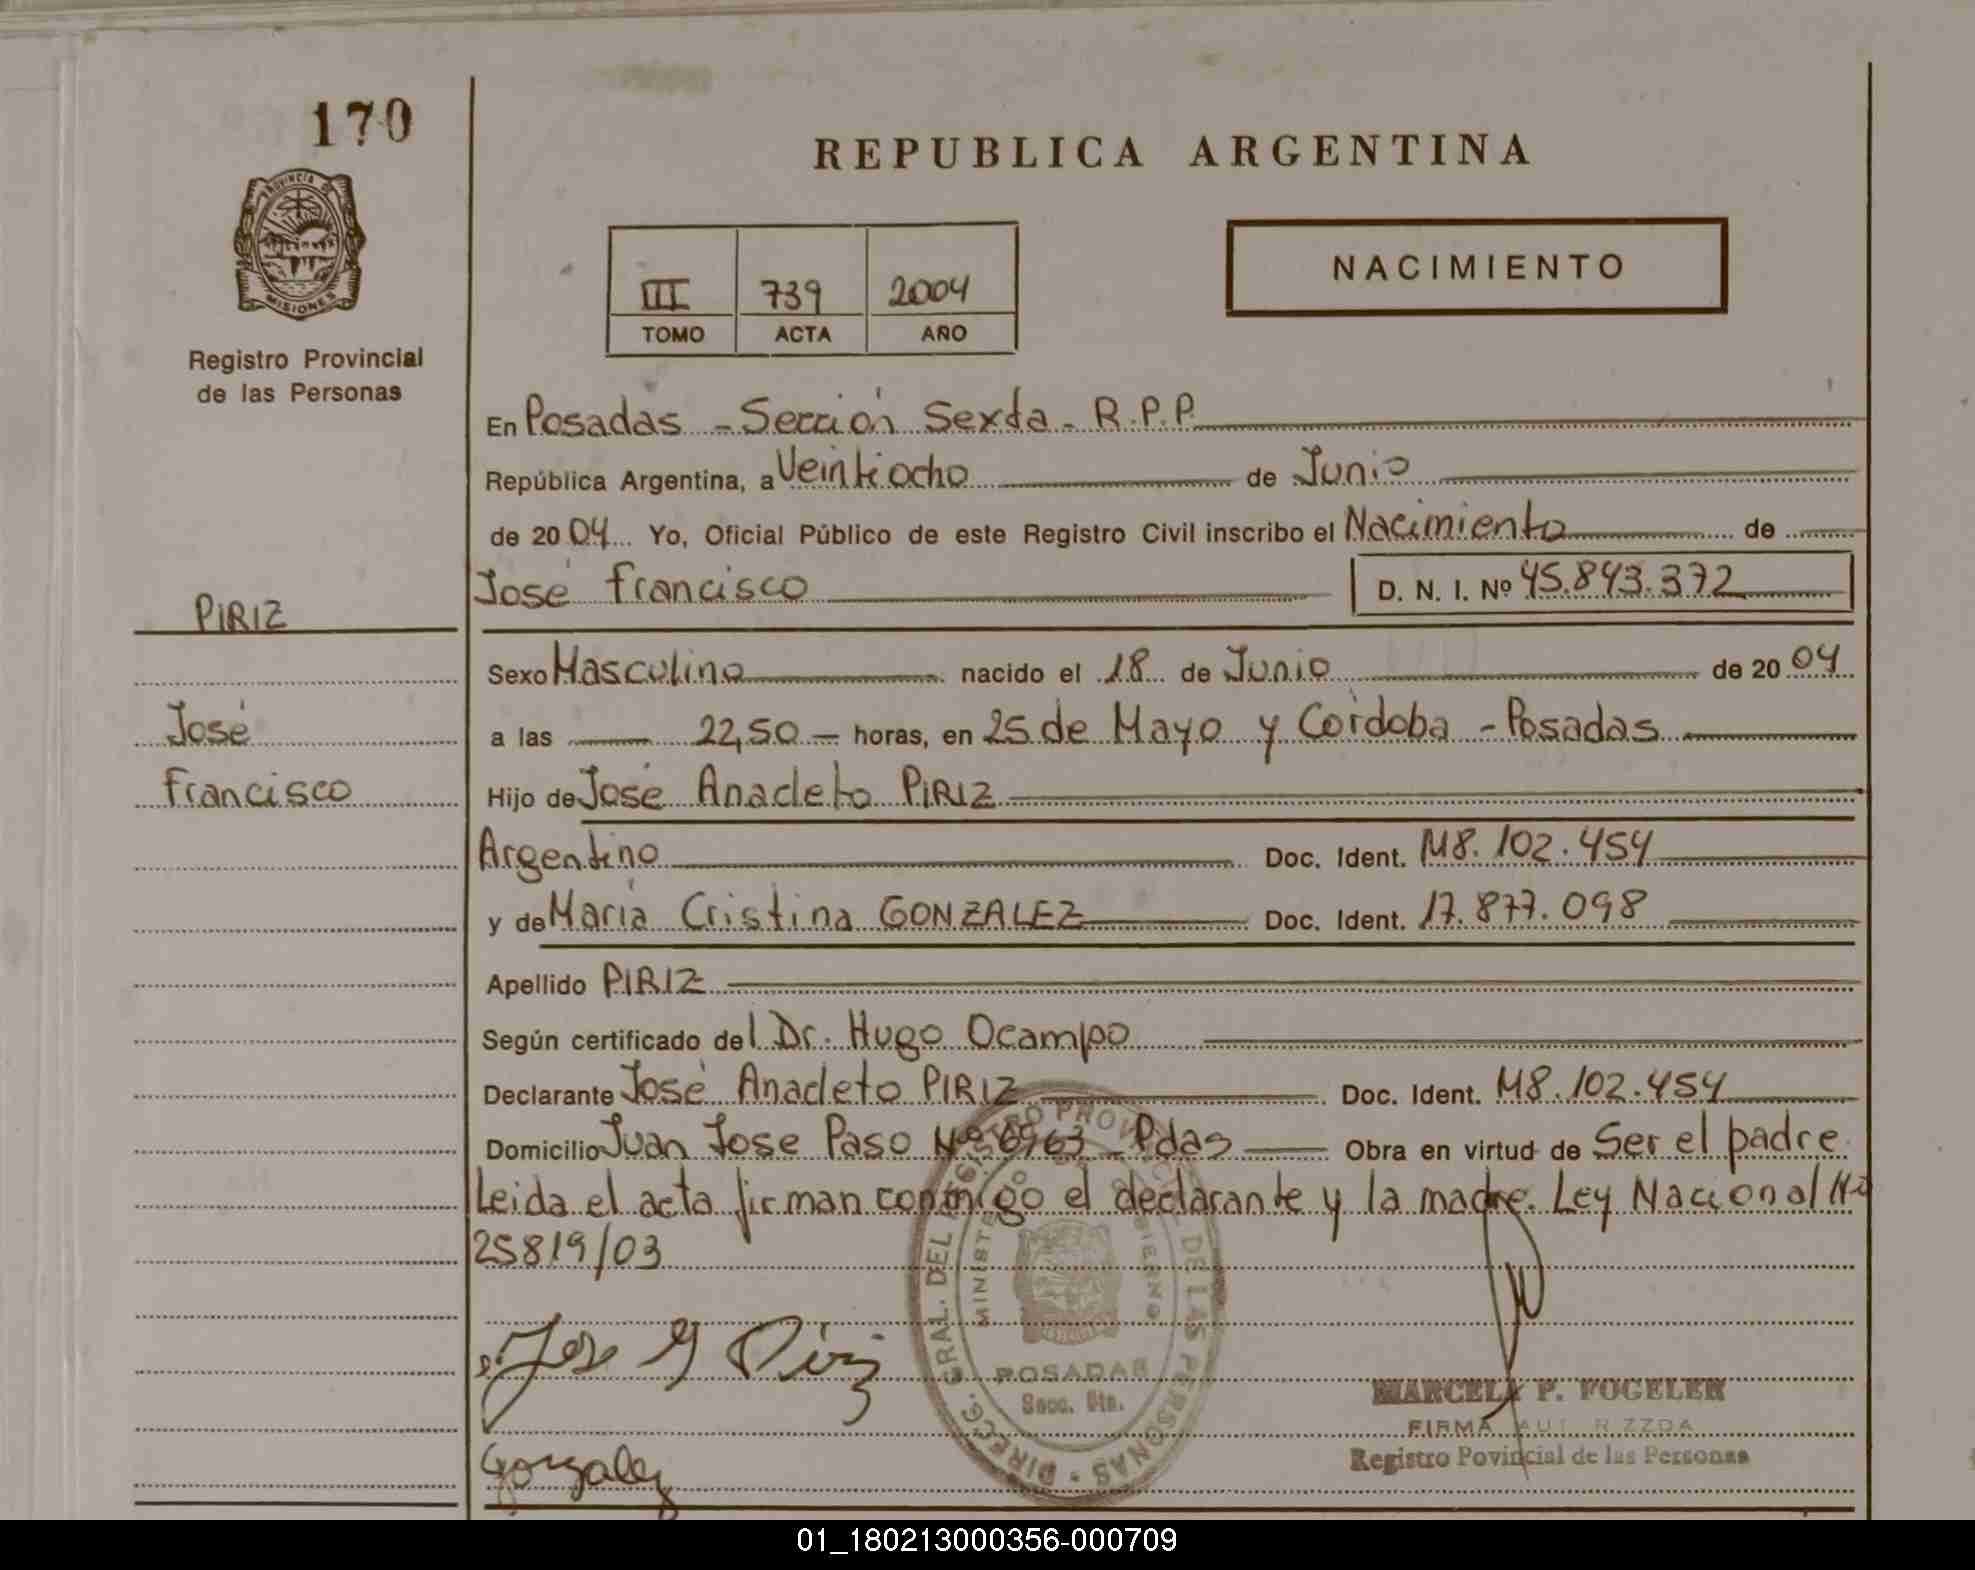 170
PROVINCIA DE
MISIONES
Registro Provincial
de las Personas
PIRIZ
José
Francisco
REPUBLICA ARGENTINA
III 739 2004
TOMO ACTA AÑO
NACIMIENTO
En Posadas - Sección Sexta - R.P.P.
República Argentina, a Veintiocho de Junio
de 2004 Yo, Oficial Público de este Registro Civil inscribo el Nacimiento de
José Francisco D. N. I. Nº 45.843.372
Sexo Masculino nacido el 18 de Junio de 2004
a las 22,50 horas, en 25 de Mayo y Córdoba - Posadas
Hijo de José Anacleto PIRIZ
Argentino Doc. Ident. M8.102.454
y de María Cristina GONZALEZ Doc. Ident. 17.877.098
Apellido PIRIZ
Según certificado del Dr. Hugo Ocampo
Declarante José Anacleto PIRIZ Doc. Ident. M8.102.454
Domicilio Juan Jose Paso Nº 6963 - Pdas Obra en virtud de Ser el padre
Leida el acta firman conmigo el declarante y la madre. Ley Nacional Nº
25819/03
Jose Piriz
Gonzalez
DIRECC. GRAL. DEL REGISTRO PROVINCIAL DE LAS PERSONAS
POSADAS
Secc. 6ta.
MARCELA P. FOGELER
FIRMA AUTORIZZDA
Registro Povincial de las Personas
01_180213000356-000709